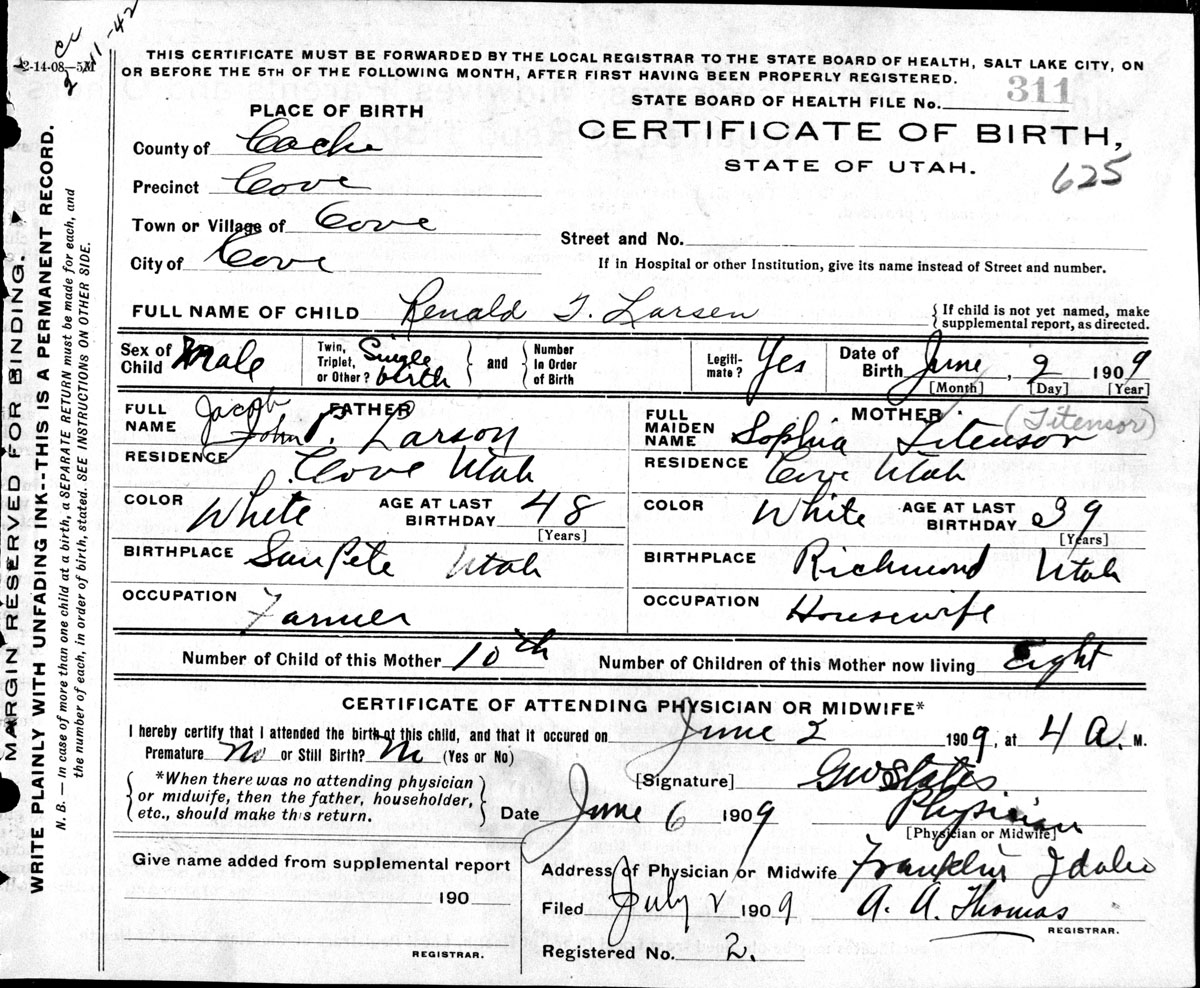 2-14-08—5M
2-11-42
THIS CERTIFICATE MUST BE FORWARDED BY THE LOCAL REGISTRAR TO THE STATE BOARD OF HEALTH, SALT LAKE CITY, ON
OR BEFORE THE 5TH OF THE FOLLOWING MONTH, AFTER FIRST HAVING BEEN PROPERLY REGISTERED.
STATE BOARD OF HEALTH FILE No. 311
PLACE OF BIRTH
CERTIFICATE OF BIRTH,
STATE OF UTAH.
625
County of Cache
Precinct Cove
Town or Village of Cove
Street and No.
City of Cove
If in Hospital or other Institution, give its name instead of Street and number.
FULL NAME OF CHILD Renald T. Larsen
If child is not yet named, make
supplemental report, as directed.
Sex of Child Male
Twin, Triplet, or Other? Single birth
and
Number In Order of Birth
Legiti-mate? Yes
Date of Birth June 2 1909
[Month] [Day] [Year]
FATHER
FULL NAME Jacob John P. Larson
RESIDENCE Cove Utah
COLOR White AGE AT LAST BIRTHDAY 48
[Years]
BIRTHPLACE SanPete Utah
OCCUPATION Farmer
MOTHER
(Titensor)
FULL MAIDEN NAME Sophia Titensor
RESIDENCE Cove Utah
COLOR White AGE AT LAST BIRTHDAY 39
[Years]
BIRTHPLACE Richmond Utah
OCCUPATION Housewife
Number of Child of this Mother 10th Number of Children of this Mother now living Eight
CERTIFICATE OF ATTENDING PHYSICIAN OR MIDWIFE*
I hereby certify that I attended the birth of this child, and that it occured on June 2 1909, at 4 A. M.
Premature No or Still Birth? No (Yes or No)
*When there was no attending physician
or midwife, then the father, householder,
etc., should make this return.
[Signature] GW States
Physician
[Physician or Midwife]
Date June 6 1909
Give name added from supplemental report
190
REGISTRAR.
Address of Physician or Midwife Franklin Idaho
Filed July 2 1909 A. A. Thomas
REGISTRAR.
Registered No. 2.
MARGIN RESERVED FOR BINDING.
WRITE PLAINLY WITH UNFADING INK--THIS IS A PERMANENT RECORD.
N. B. — In case of more than one child at a birth, a SEPARATE RETURN must be made for each, and
the number of each, in order of birth, stated. SEE INSTRUCTIONS ON OTHER SIDE.